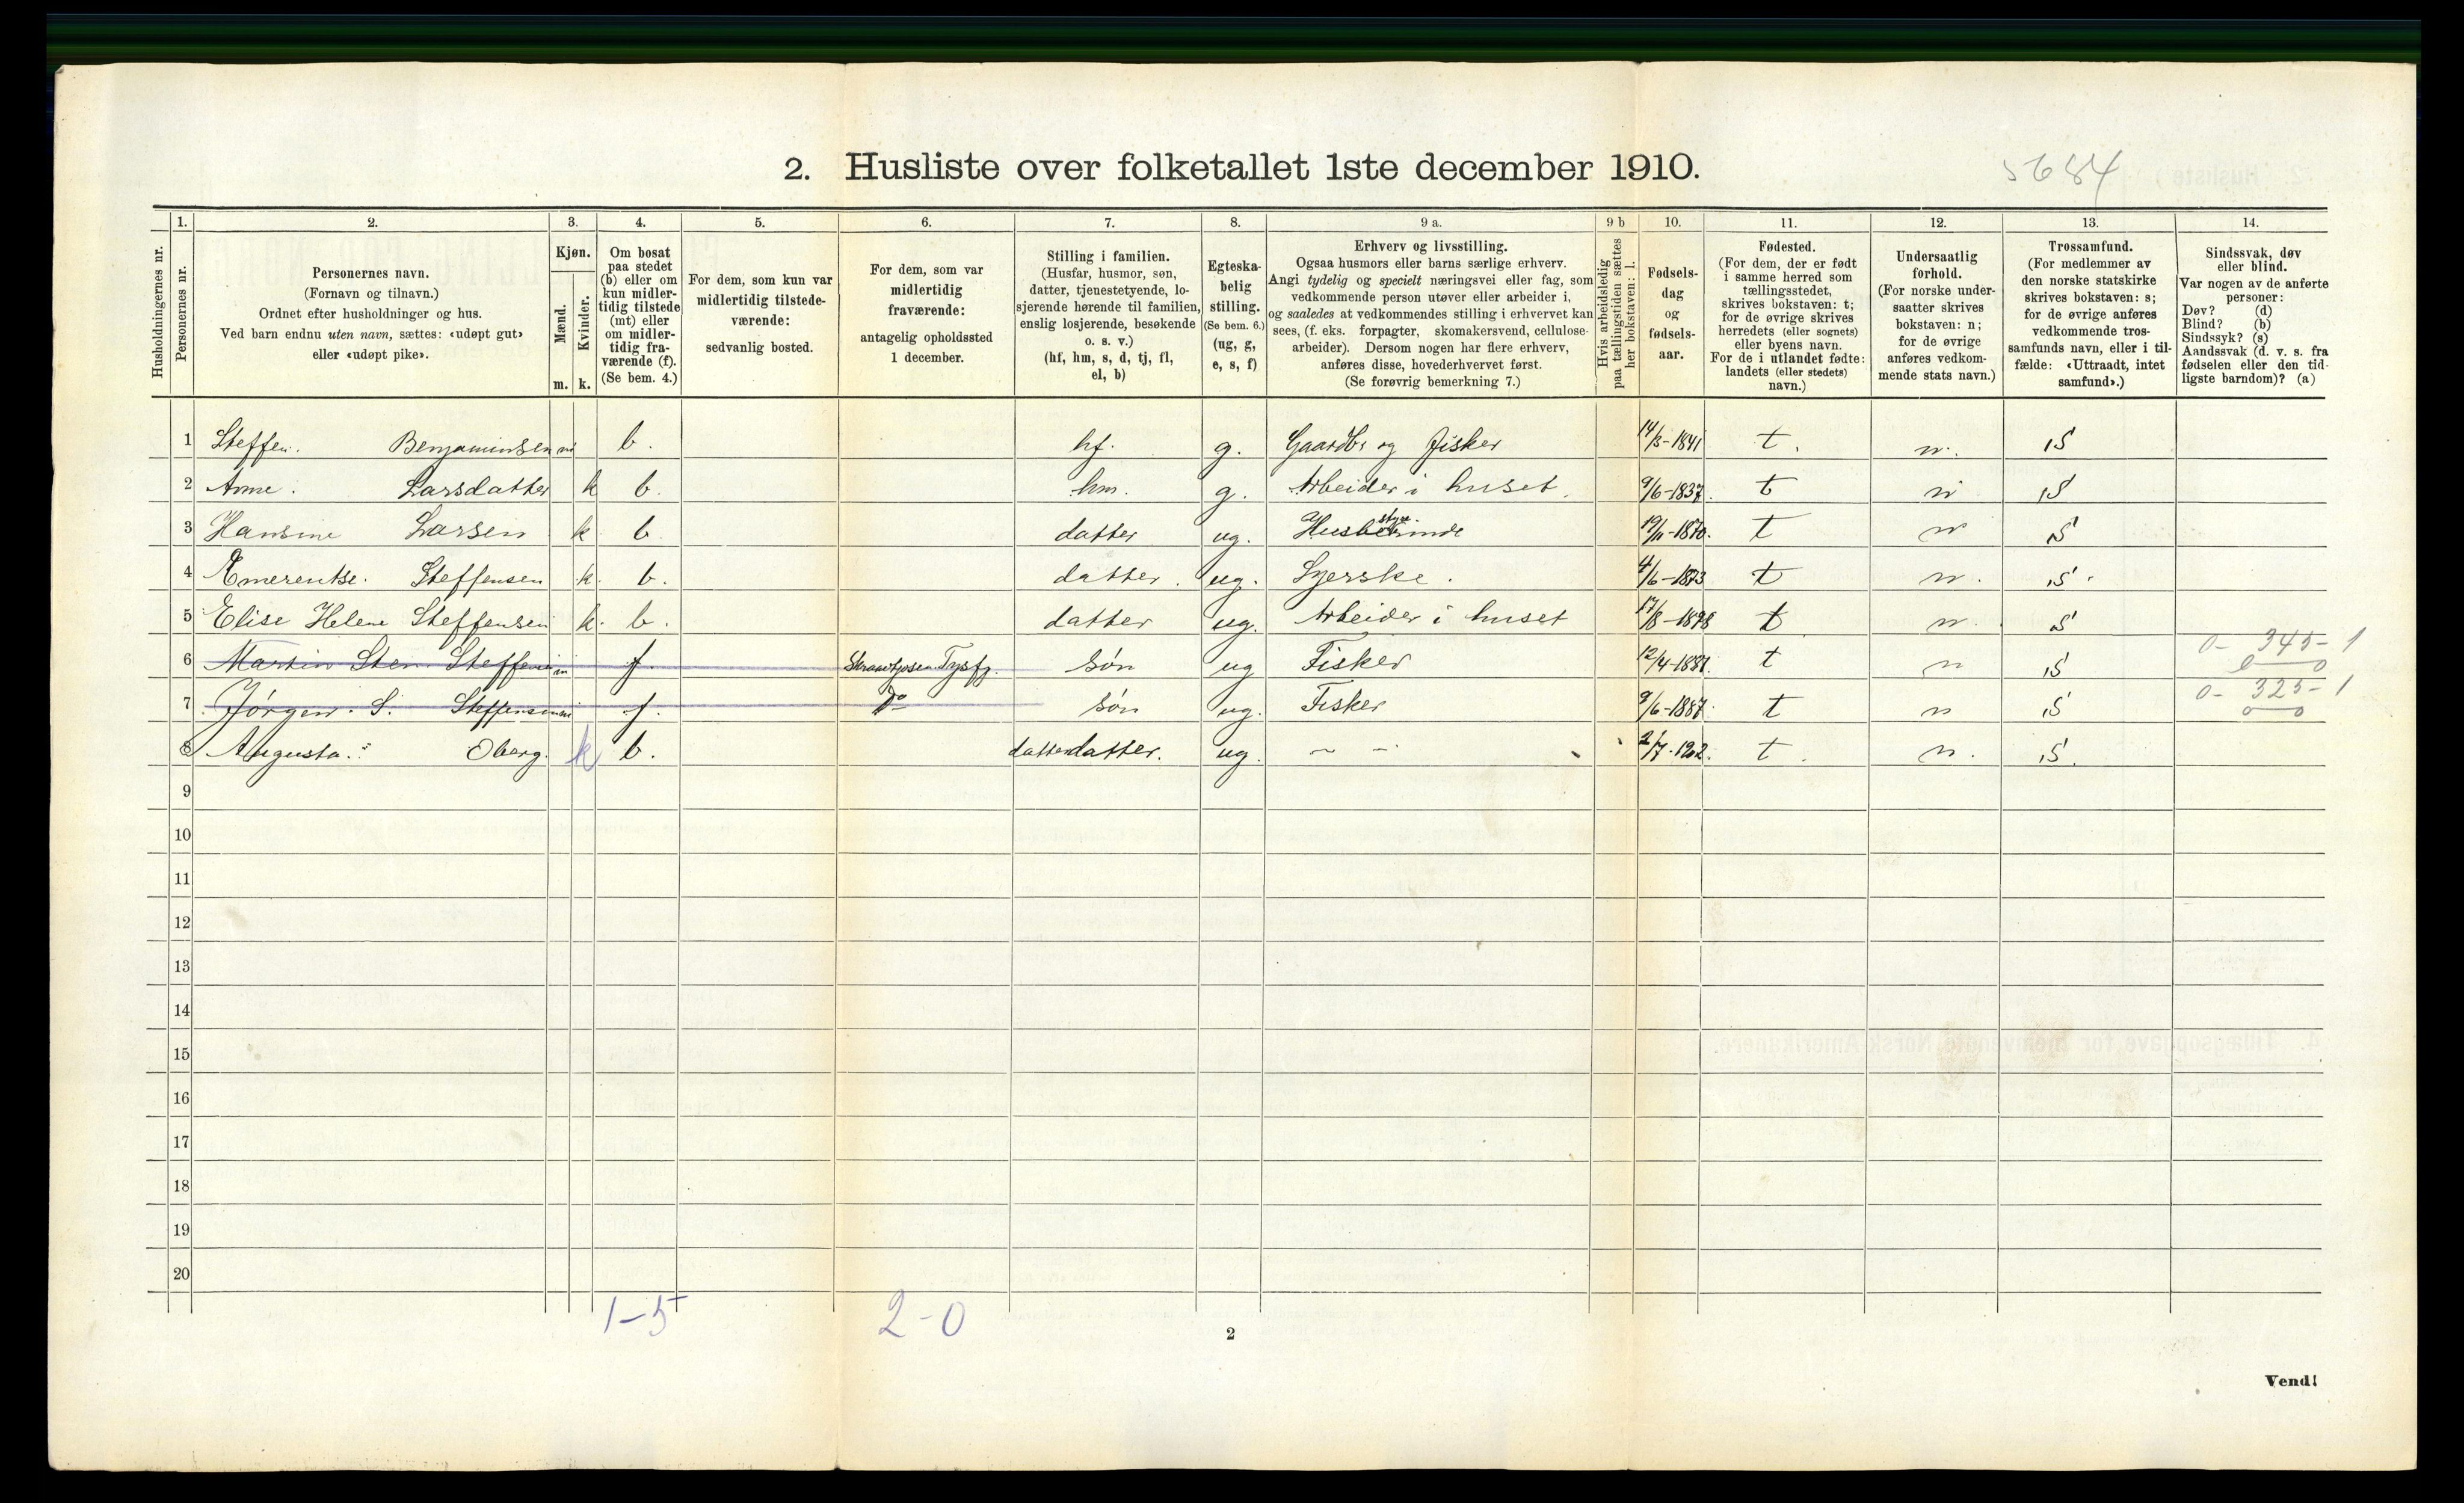 2. Husliste over folketallet 1ste december 1910.
5684
1. 2. 3. 4. 5. 6. 7. 8. 9 a. 9 b 10. 11. 12. 13. 14.
Husholdningernes nr.
Personernes nr.
Personernes navn.
(Fornavn og tilnavn.)
Ordnet efter husholdninger og hus.
Ved barn endnu uten navn, sættes: «udøpt gut»
eller «udøpt pike».
Kjøn.
Mænd.
Kvinder.
m. k.
Om bosat
paa stedet
(b) eller om
kun midler-
tidig tilstede
(mt) eller
om midler-
tidig fra-
værende (f).
(Se bem. 4.)
For dem, som kun var
midlertidig tilstede-
værende:
sedvanlig bosted.
For dem, som var
midlertidig
fraværende:
antagelig opholdssted
1 december.
Stilling i familien.
(Husfar, husmor, søn,
datter, tjenestetyende, lo-
sjerende hørende til familien,
enslig losjerende, besøkende
o. s. v.)
(hf, hm, s, d, tj, fl,
el, b)
Egteska-
belig
stilling.
(Se bem. 6.)
(ug, g,
e, s, f)
Erhverv og livsstilling.
Ogsaa husmors eller barns særlige erhverv.
Angi tydelig og specielt næringsvei eller fag, som
vedkommende person utøver eller arbeider i,
og saaledes at vedkommendes stilling i erhvervet kan
sees, (f. eks. forpagter, skomakersvend, cellulose-
arbeider). Dersom nogen har flere erhverv,
anføres disse, hovederhvervet først.
(Se forøvrig bemerkning 7.)
Hvis arbeidsledig
paa tællingstiden sættes
her bokstaven: l.
Fødsels-
dag
og
fødsels-
aar.
Fødested.
(For dem, der er født
i samme herred som
tællingsstedet,
skrives bokstaven: t;
for de øvrige skrives
herredets (eller sognets)
eller byens navn.
For de i utlandet fødte:
landets (eller stedets)
navn.)
Undersaatlig
forhold.
(For norske under-
saatter skrives
bokstaven: n;
for de øvrige
anføres vedkom-
mende stats navn.)
Trossamfund.
(For medlemmer av
den norske statskirke
skrives bokstaven: s;
for de øvrige anføres
vedkommende tros-
samfunds navn, eller i til-
fælde: «Uttraadt, intet
samfund».)
Sindssvak, døv
eller blind.
Var nogen av de anførte
personer:
Døv? (d)
Blind? (b)
Sindssyk? (s)
Aandssvak (d. v. s. fra
fødselen eller den tid-
ligste barndom)? (a)
1 Steffen. Benjaminsen m b. hf. g. Gaardbr og Fisker 14/3-1841 t. n. S
2 Anne. Larsdatter k b. hm. g. Arbeider i huset. 9/6-1837. t n S
3 Hansine Larsen k b. datter ug. Husbestyrinde 19/11-1870. t n S
4 Emerentse. Steffensen k. b. datter. ug. Syerske. 4/6-1873 t n. S.
5 Elise Helene Steffensen k. b. datter ug. Arbeider i huset 17/8-1878 t n. S
6 Martin Sten. Steffensen m f. Tysfj. søn ug Fisker 12/4-1881. t n S 0- 345-1
0 0
7 Jørgen. S. Steffensen m f. Do søn ug. Fisker 9/6-1887. t n S 0- 325-1
0 0
8 Augusta. Oberg. k b. datterdatter. ug. - - 2/7-1902. t. n. S.
9
10
11
12
13
14
15
16
17
18
19
20
1-5 2-0
2
Vend!